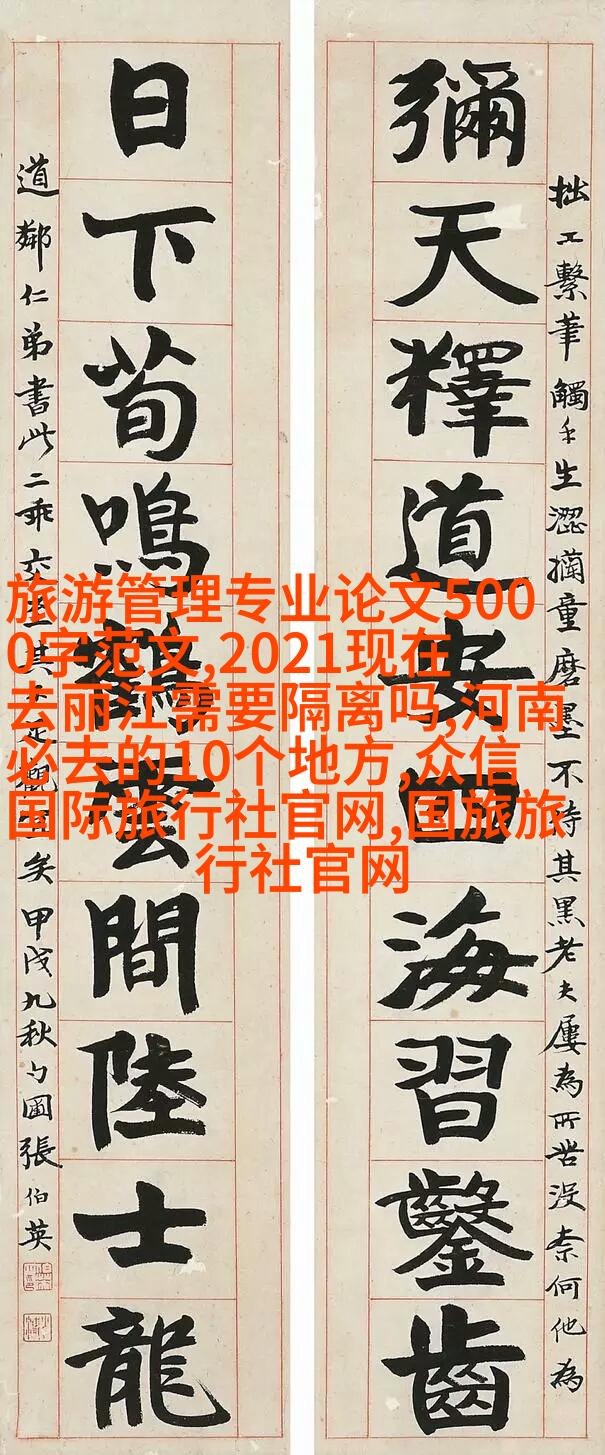 彌天釋道安四海習鑿齒
拙工繫筆觸手生澀童磨墨不待其黑老夫屢為所苦没柰何他為
日下荀鳴鶴雲間陸士龍
道鄰仁弟書此二乖交至其不足觀宜矣甲戌九秋勺圃張伯英
旅游管理专业论文500
0字范文,2021现在
去丽江需要隔离吗,河南
必去的10个地方,众信
国际旅行社官网,国旅旅
行社官网